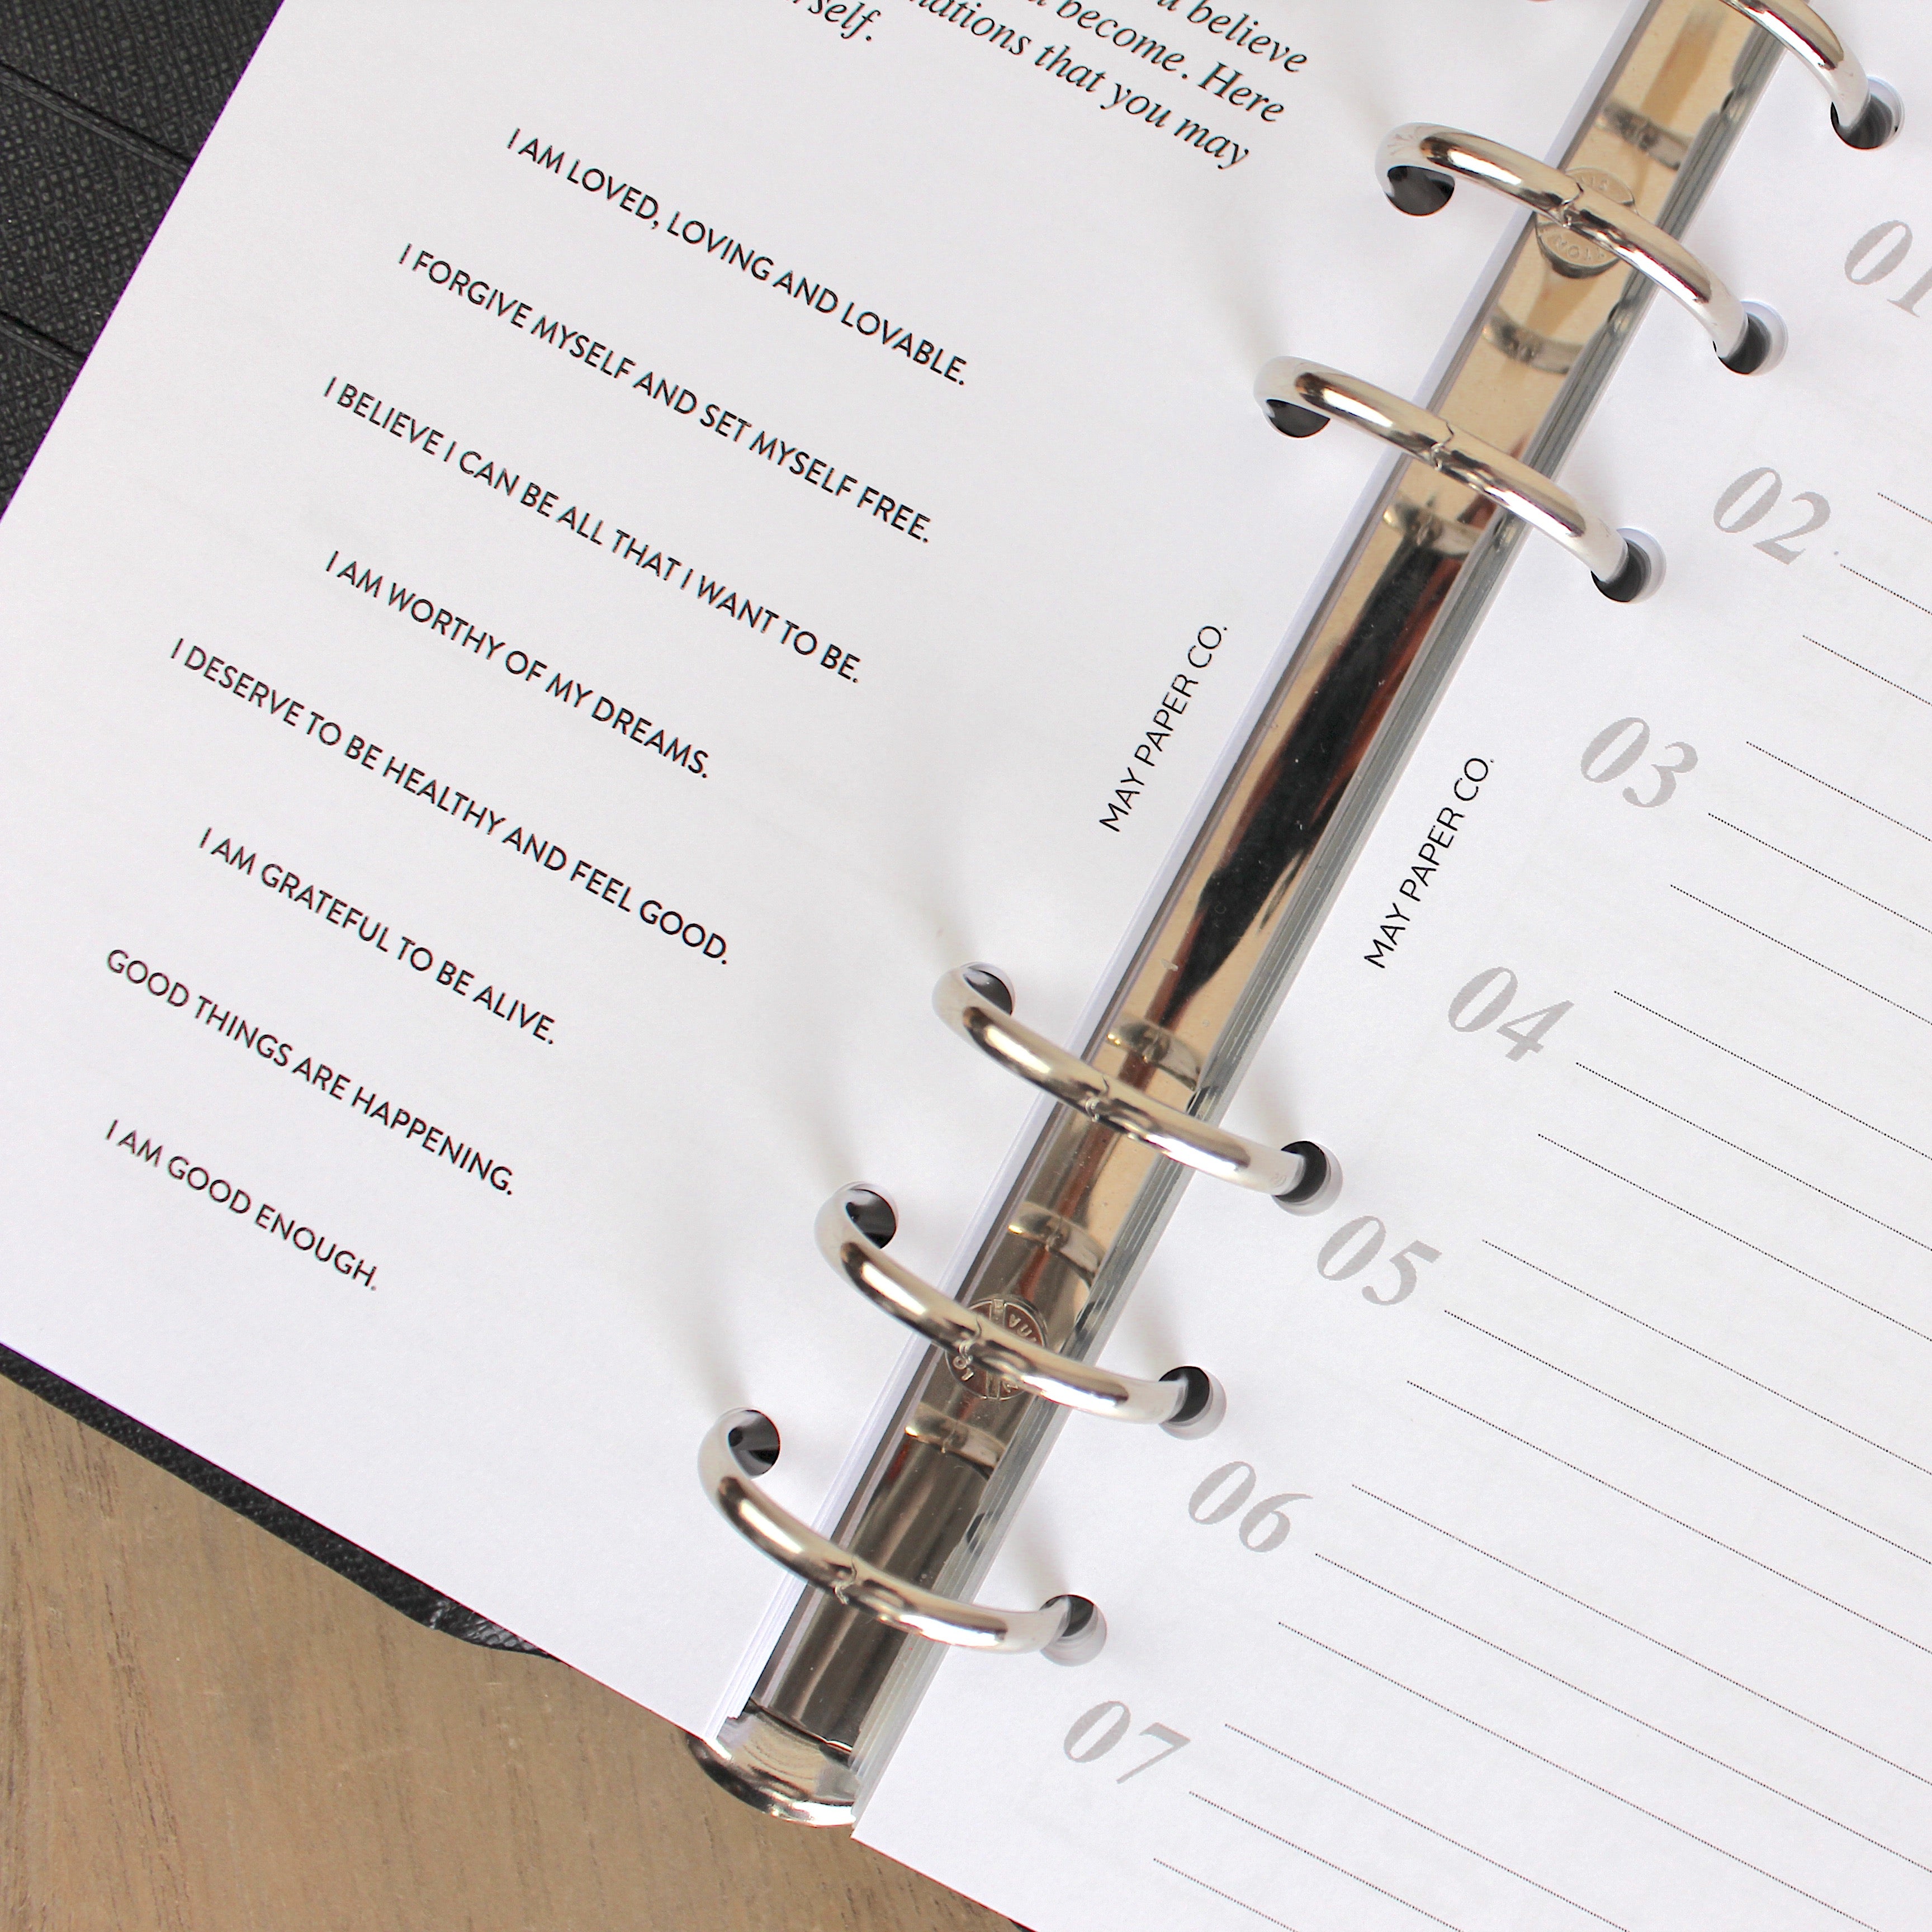 believe
become. Here
that you may
I AM LOVED, LOVING AND LOVABLE.
I FORGIVE MYSELF AND SET MYSELF FREE.
I BELIEVE I CAN BE ALL THAT I WANT TO BE.
I AM WORTHY OF MY DREAMS.
I DESERVE TO BE HEALTHY AND FEEL GOOD.
I AM GRATEFUL TO BE ALIVE.
GOOD THINGS ARE HAPPENING.
I AM GOOD ENOUGH.
MAY PAPER CO.
MAY PAPER CO.
01
02
03
04
05
06
07